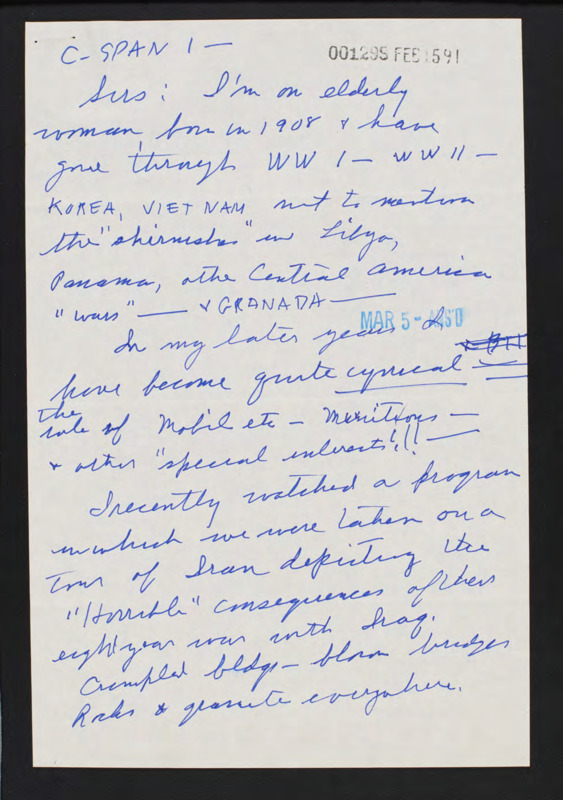 C-SPAN 1 —
001295 FEB 1591
Sirs: I'm an elderly
woman, born in 1908 & have
gone through WW I — WW II —
KOREA, VIET NAM not to mention
the "skirmishes" in Libya,
Panama, othe Central America
"wars" — & GRANADA —
MAR 5-
In my later years I
have become quite cynical
the
role of Mobil etc —
& other "special interests"!!! —
I recently watched a program
in which we were taken on a
Tour of Iran depicting the
"Horrible" consequences of their
eight year war with Iraq.
Crumpled bldgs — blown bridges
Rocks & granite everywhere.